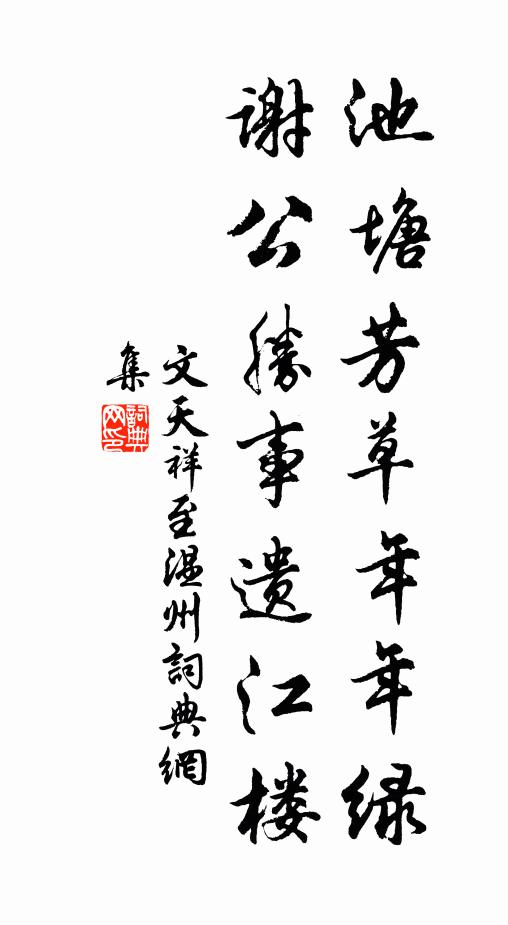 池塘芳草年年绿
谢公勝事遗江楼
文天祥至温州詞典網
集
詞典网印